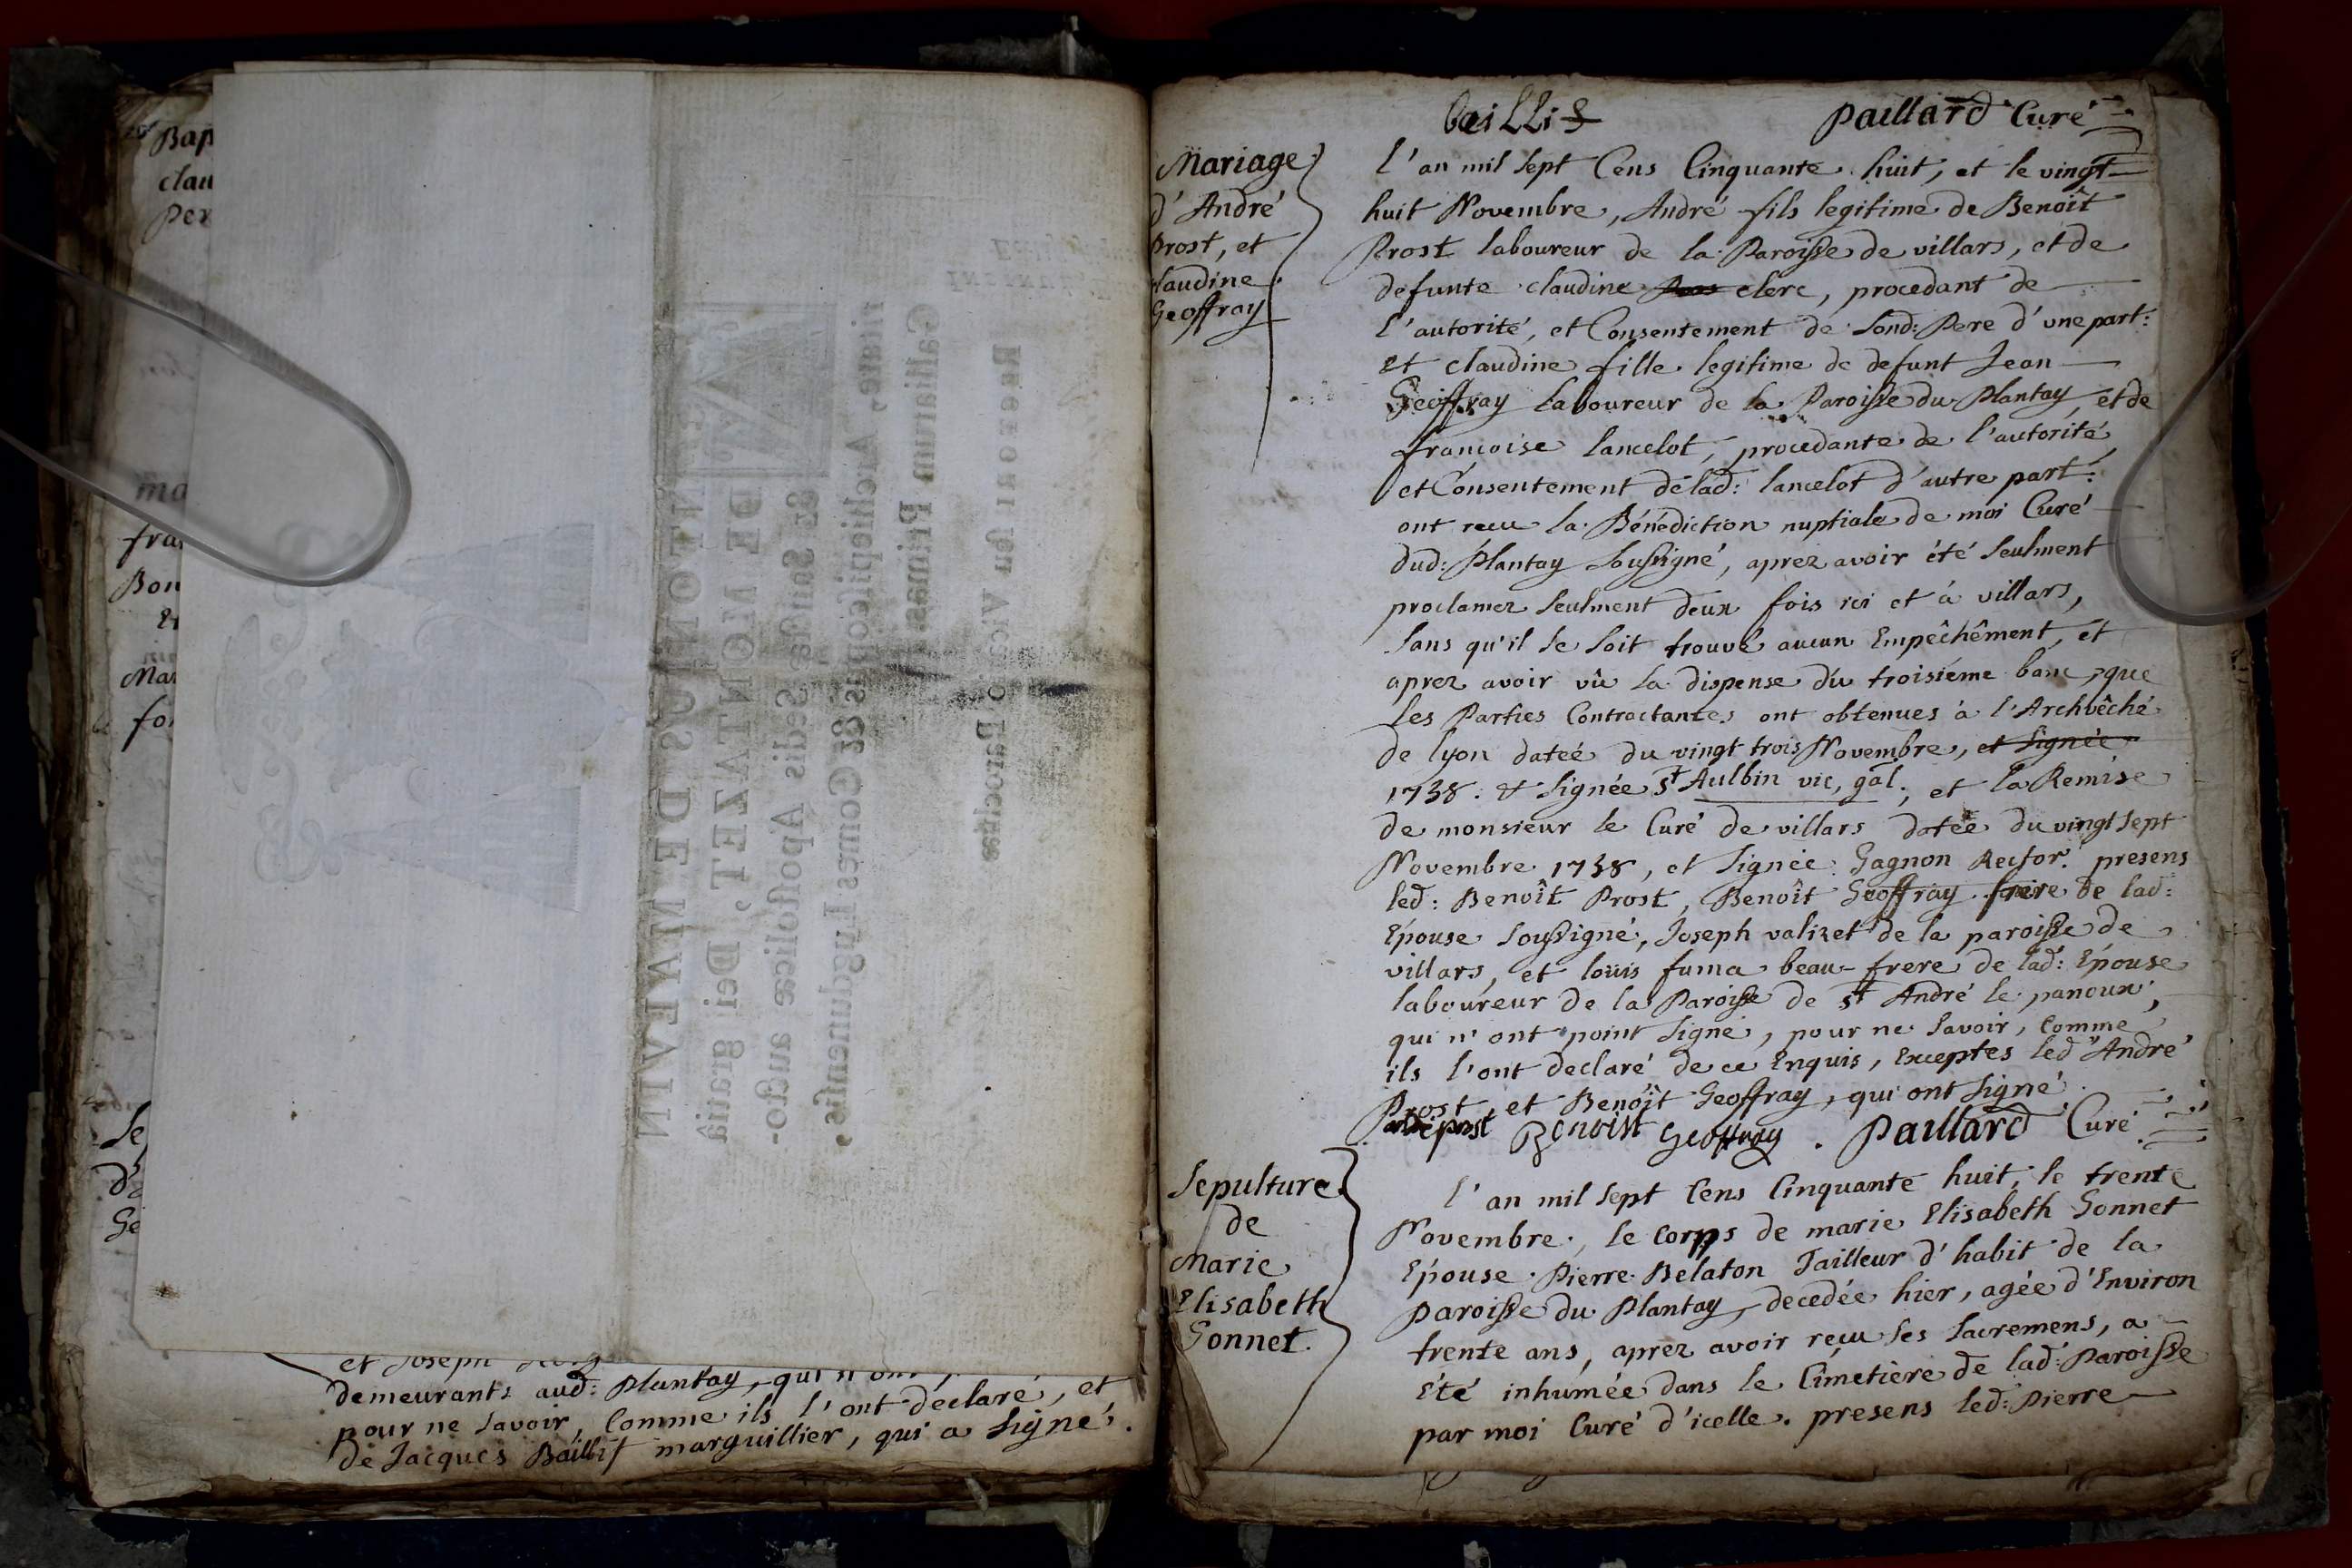 Bap
clau
per
ma
fra
Bon
Et
Mar
fo
Se
d'
Ge
et Joseph
demeurants aud: Plantay, qui n'ont
pour ne savoir, comme ils l'ont declaré, et
de Jacques Baillif marguillier, qui a signé.
ANTONIUS DE MALVIN
DE MONTAZET, Dei gratiâ
& Sanctæ Sedis Apostolicæ aucto-
ritate, Archiepiscopus & Comes Lugdunensis,
Galliarum Primas.
Rectori seu Vicario Parochiæ
bailli Paillard Curé
Mariage
d'André
Prost, et
Claudine
Geoffray
L'an mil sept Cens Cinquante huit, et le vingt
huit Novembre, André fils legitime de Benoît
Prost laboureur de la Paroisse de villars, et de
defunte claudine clerc, procedant de
l'autorité, et Consentement de sond: Pere d'une part:
et claudine fille legitime de defunt Jean
Geoffray laboureur de la Paroisse du Plantay, et de
francoise lancelot, procedante de l'autorité
et Consentement de lad: lancelot d'autre part:
ont recu la Bénédiction nuptiale de moi Curé
dud: Plantay soussigné, aprez avoir été seulment
proclamez seulment deux fois ici et à villars,
sans qu'il se soit trouvé aucun Empêchêment, et
aprez avoir vû la dispense du troisiéme banc, que
les Parties Contractantes ont obtenues à l'Archvêché
de lyon dateé du vingt trois Novembre, et signée
1758. & signée St Aulbin vic, gal.; et la Remise
de monsieur le Curé de villars datée du vingt sept
Novembre 1758, et signée Gagnon Rector. presens
led: Benoît Prost, Benoît Geoffray frere de lad:
Epouse soussigné, Joseph valizet de la paroisse de
villars, et loüis fuma beau-frere de lad: Epouse
laboureur de la Paroisse de St André le panoux,
qui n'ont point signé, pour ne savoir, comme
ils l'ont declaré de ce Enquis, Exceptes led André
Prost et Benoît Geoffray, qui ont signé.
andré prost Benoist Geoffray. Paillard Curé
Sepulture
de
Marie
Elisabeth
Gonnet.
L'an mil sept Cens Cinquante huit, le trente
Novembre, le corps de marie Elisabeth Gonnet
Epouse Pierre Belaton Tailleur d'habit de la
paroisse du Plantay, decedée hier, agée d'Environ
trente ans, aprez avoir reçu ses sacremens, a
Eté inhumée dans le Cimetiere de lad: Paroisse
par moi Curé d'icelle. presens led: Pierre